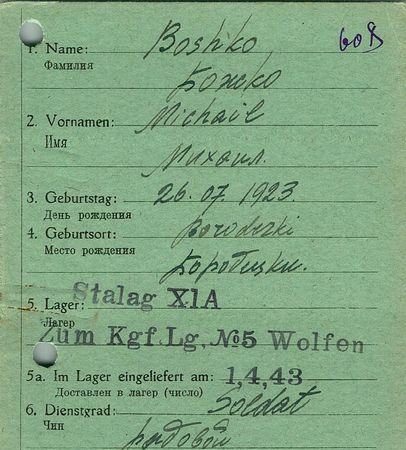 608
1. Name: Boshko
Фамилия
Божко
2. Vornamen: Michail
Имя
Михаил.
3. Geburtstag: 26.07.1923.
День рождения
4. Geburtsort:
Место рождения
5. Lager: Stalag XIA
Лагер
Zum Kgf.Lg. №5 Wolfen
5a. Im Lager eingeliefert am: 1,4,43
Доставлен в лагер (число)
6. Dienstgrad: Soldat
Чин
рядовой